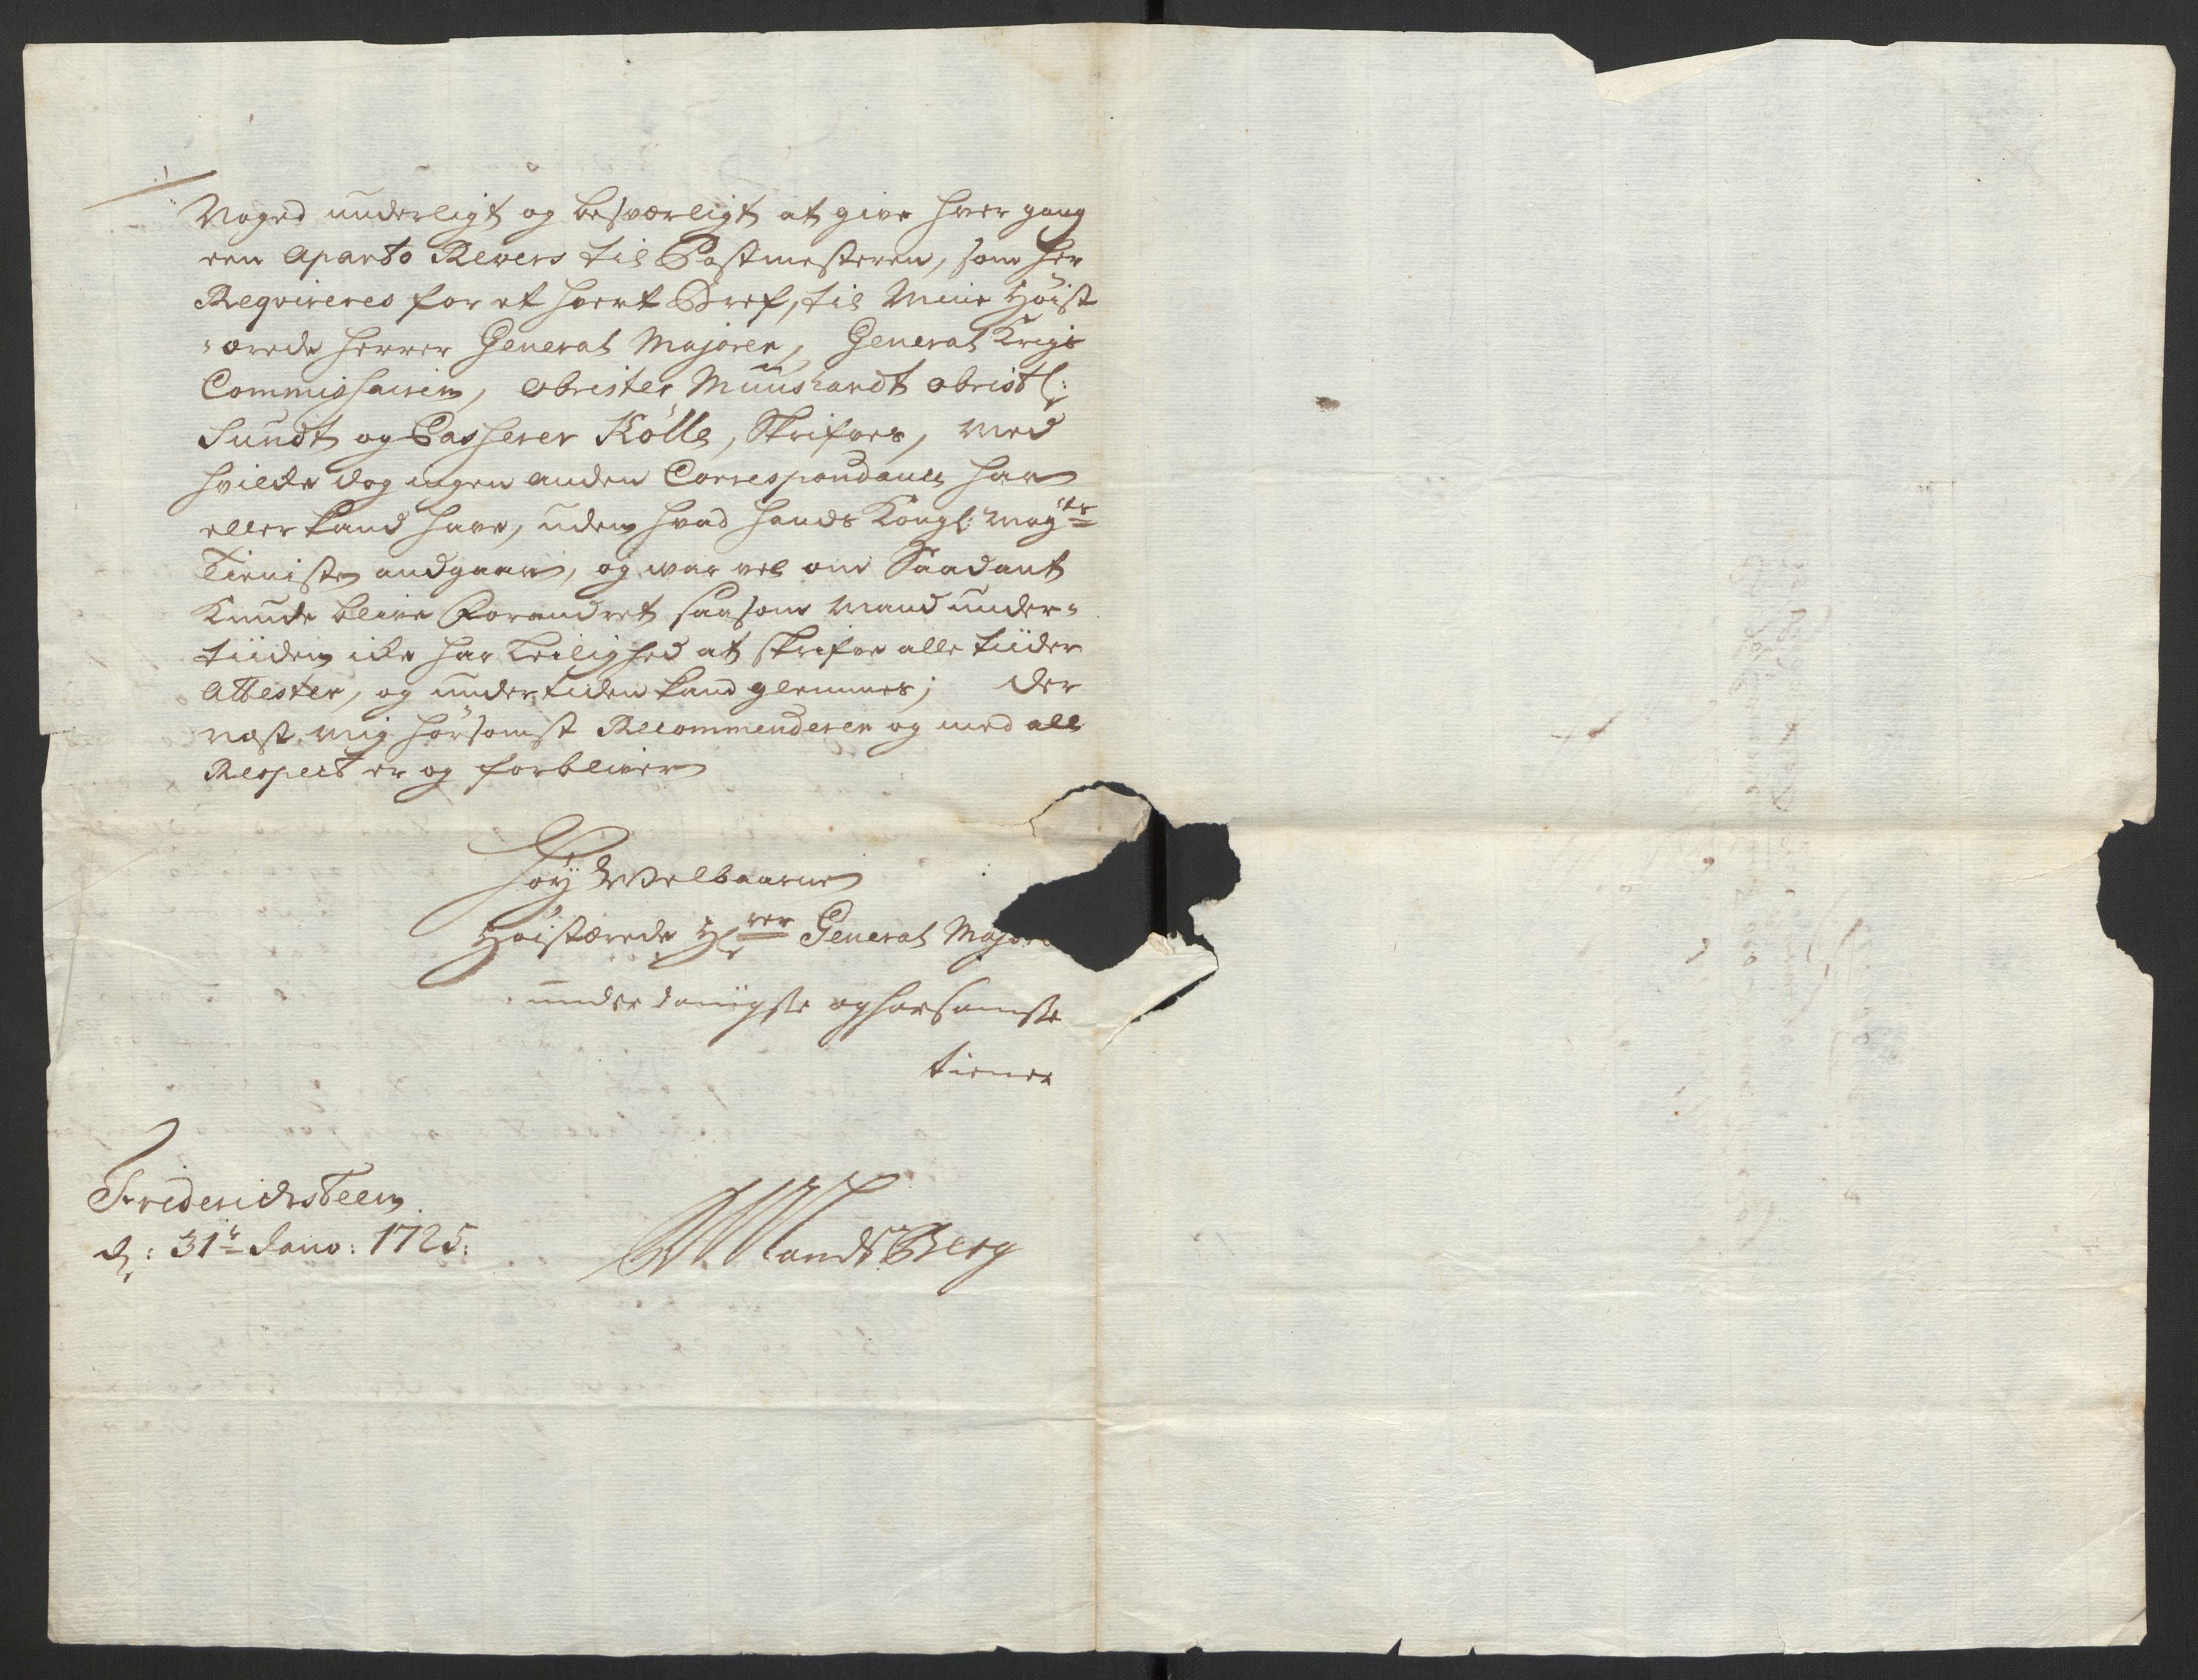 Noged underligt og besværligt at give hver gang
een aparte Revers til Postmesteren, som her
Reqvireres for et hvert Bref, til Mine Høist
ærede Herrer General Majoren, General Krigs
Commissairen, obrister Munshandt obristl:
Sundt og Casserer Kölle, Skrifves, med
hvilcke dog ingen anden Correspondance har
eller kand have, uden hvad hands Kongl: May:ts
Tieniste andgaar, og war vel om Saadant
Kunde blive Forandret saasom mand under-
tiiden icke har Leilighed at skrifve alle tiider
Attester, og undertiden kand glemmes; der
næst mig hørsomst Recommenderer og med all
Respect er og forbliver
Høy Edle Velbaarne
Høistærede Hr General Major
underdanigste og hørsomste
tiener
Fridericksteen
d: 31te Janv: 1725:
LandtBerg